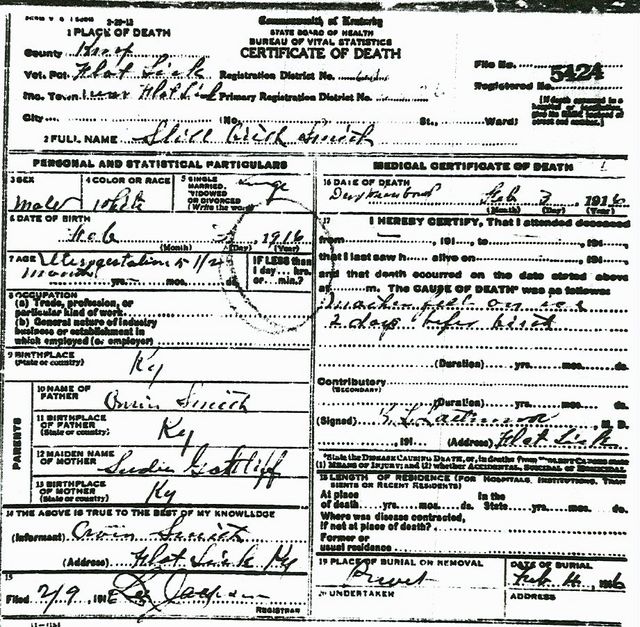 Commonwealth of Kentucky
STATE BOARD OF HEALTH
BUREAU OF VITAL STATISTICS
CERTIFICATE OF DEATH
1 PLACE OF DEATH
County Knox
Vot. Pct. Flat Lick Registration District No.
Inc. Town near Flat Lick Primary Registration District No.
City (No. St., Ward)
File No. 5424
Registered No.
[If death occurred in a hospital or institution, give its NAME instead of street and number.]
2 FULL NAME Still Birth Smith
PERSONAL AND STATISTICAL PARTICULARS
3 SEX Male
4 COLOR OR RACE White
5 SINGLE, MARRIED, WIDOWED OR DIVORCED (Write the word) Single
6 DATE OF BIRTH
Feb 3, 1916
(Month) (Day) (Year)
7 AGE 5 1/2
months yrs. mos. ds.
IF LESS than 1 day... hrs. or... min.?
8 OCCUPATION
(a) Trade, profession, or particular kind of work
(b) General nature of industry
business or establishment in
which employed (or employer)
9 BIRTHPLACE
(State or country) Ky
PARENTS
10 NAME OF FATHER Orvin Smith
11 BIRTHPLACE OF FATHER (State or country) Ky
12 MAIDEN NAME OF MOTHER
13 BIRTHPLACE OF MOTHER (State or country) Ky
14 THE ABOVE IS TRUE TO THE BEST OF MY KNOWLEDGE
(Informant) Orvin Smith
(Address) Flat Lick Ky
15
Filed 2/9, 1916
REGISTRAR
MEDICAL CERTIFICATE OF DEATH
16 DATE OF DEATH
Feb 3, 1916
(Month) (Day) (Year)
17 I HEREBY CERTIFY, That I attended deceased
from, 191, to, 191,
that I last saw h alive on, 191,
and that death occurred on the date stated above
at m. The CAUSE OF DEATH was as follows
Mother fell on ice
2 days before birth
(Duration) yrs. mos. ds.
Contributory
(SECONDARY)
(Duration) yrs. mos. ds.
(Signed), M. D.
, 191 (Address) Flat Lick
*State the DISEASE CAUSING DEATH, or, in deaths from VIOLENT CAUSES state
(1) MEANS OF INJURY; and (2) whether ACCIDENTAL, SUICIDAL or HOMICIDAL
18 LENGTH OF RESIDENCE (FOR HOSPITALS, INSTITUTIONS, TRANSIENTS OR RECENT RESIDENTS)
At place of death yrs. mos. ds. In the State yrs. mos. ds.
Where was disease contracted,
if not at place of death?
Former or
usual residence
19 PLACE OF BURIAL OR REMOVAL
DATE OF BURIAL
Feb 4, 1916
20 UNDERTAKER
ADDRESS